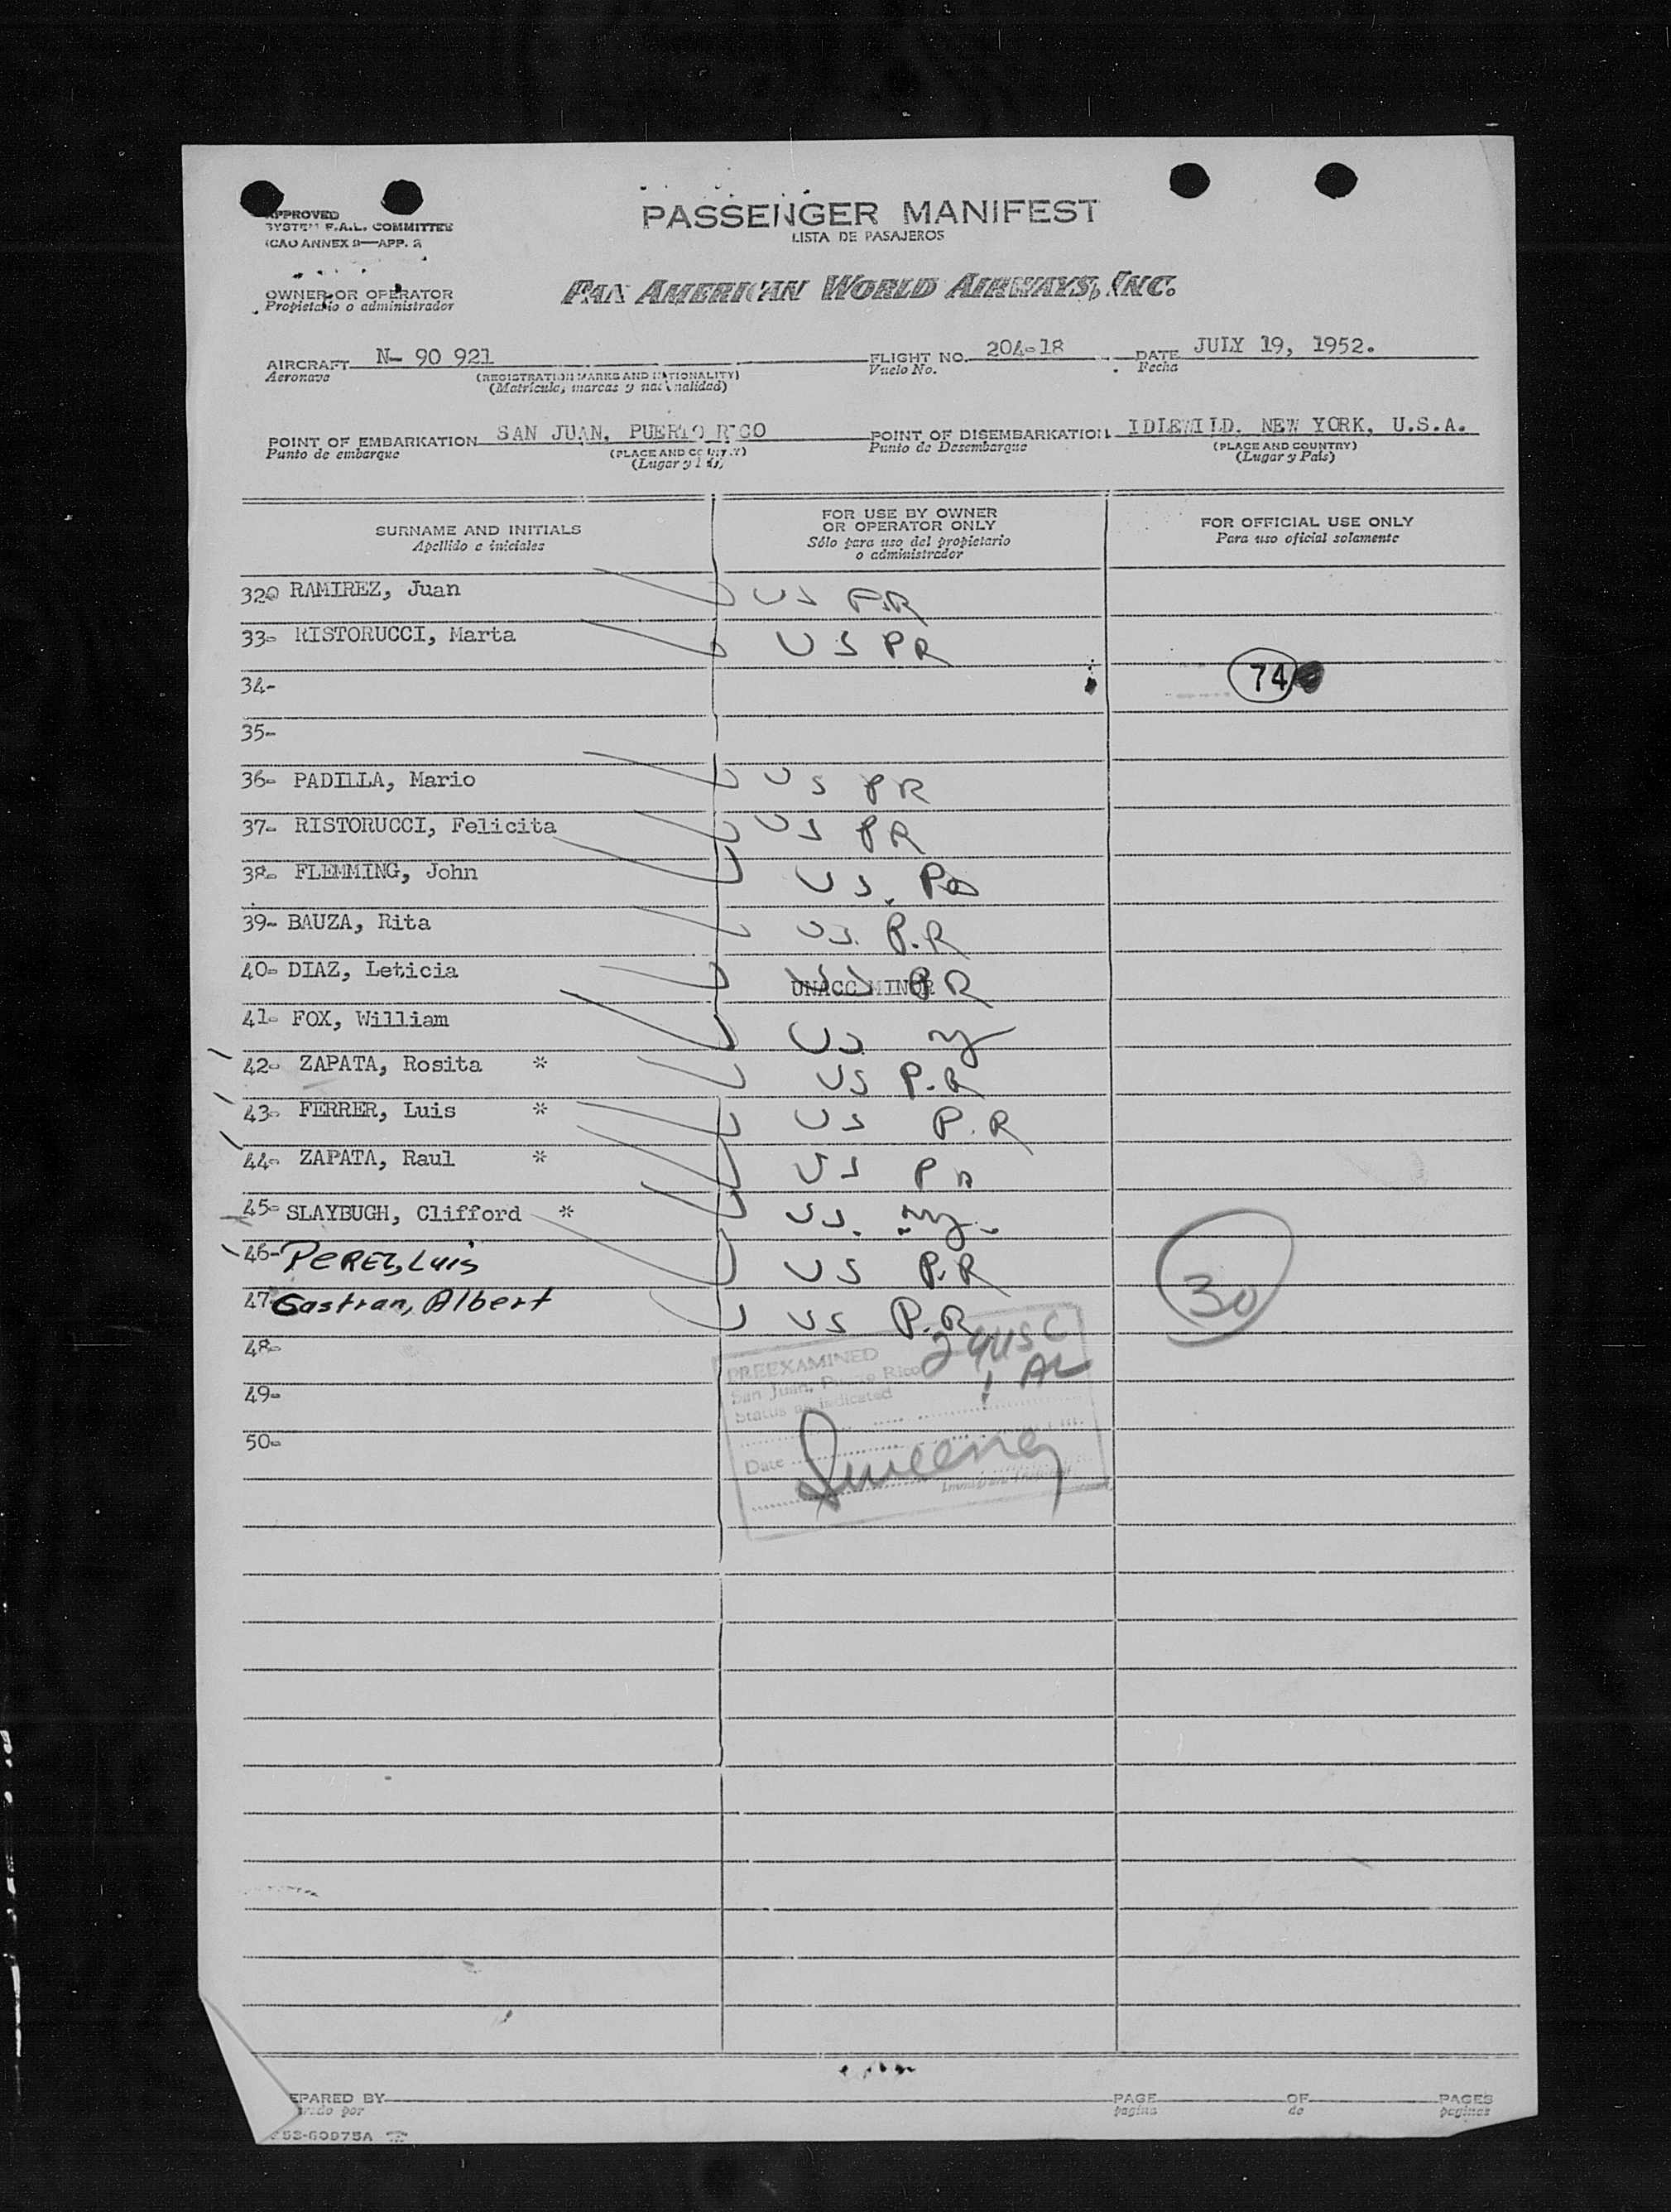 APPROVED
SYSTEM F.A.L. COMMITTEE
ICAO ANNEX 9—APP. 2
PASSENGER MANIFEST
LISTA DE PASAJEROS
OWNER OR OPERATOR
Propietario o administrador
PAN AMERICAN WORLD AIRWAYS, INC.
AIRCRAFT N- 90 921
Aeronave
(REGISTRATION MARKS AND NATIONALITY)
(Matricula, marcas y nacionalidad)
FLIGHT NO. 204-18
Vuelo No.
DATE JULY 19, 1952.
Fecha
POINT OF EMBARKATION SAN JUAN, PUERTO RICO
Punto de embarque
(PLACE AND COUNTRY)
(Lugar y País)
POINT OF DISEMBARKATION IDLEWILD. NEW YORK, U.S.A.
Punto de Desembarque
(PLACE AND COUNTRY)
(Lugar y País)
SURNAME AND INITIALS
Apellido e iniciales
FOR USE BY OWNER
OR OPERATOR ONLY
Sólo para uso del propietario
o administrador
FOR OFFICIAL USE ONLY
Para uso oficial solamente
32- RAMIREZ, Juan US P.R
33- RISTORUCCI, Marta US PR
34- 74
35-
36- PADILLA, Mario US PR
37- RISTORUCCI, Felicita US PR
38- FLEMMING, John US.
39- BAUZA, Rita US. P.R
40- DIAZ, Leticia UNACC MINOR US PR
41- FOX, William US NY
42- ZAPATA, Rosita * US P.R
43- FERRER, Luis * US P.R
44- ZAPATA, Raul * US PR
45- SLAYBUGH, Clifford * US. NY
46- PEREZ, Luis US P.R
30
47- Gastran, Albert US P.R
48-
49-
50-
PREEXAMINED
San Juan, Puerto Rico
Status as indicated
29 USC
1 AL
Date
Sweeney
PREPARED BY
PAGE OF PAGES
pagina de paginas